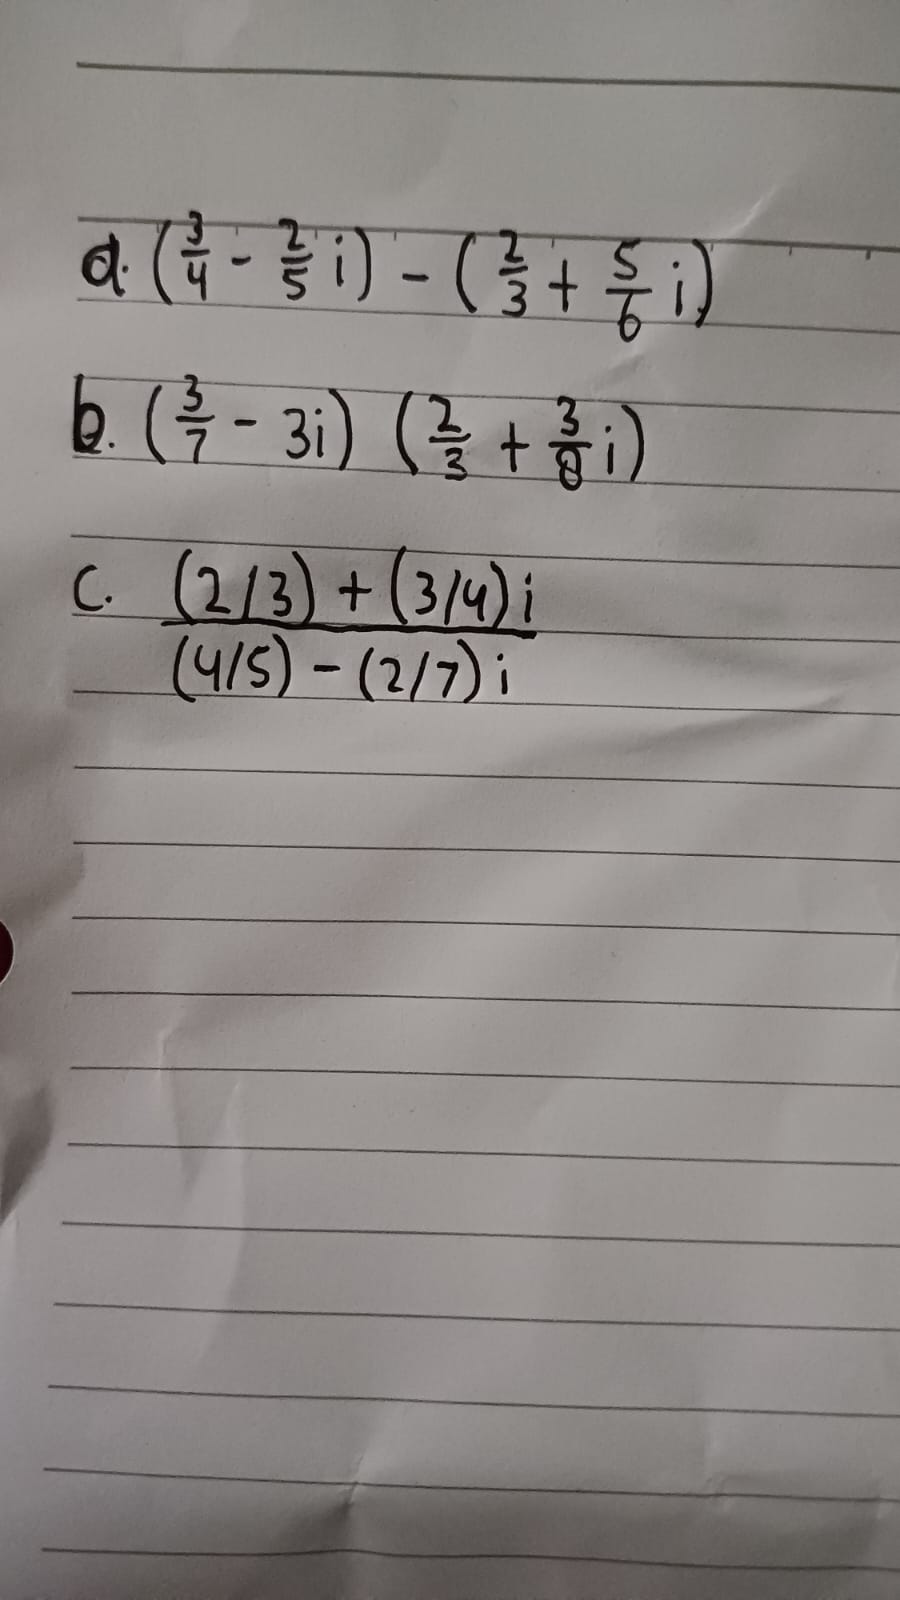 a. (3/4 - 2/5 i) - (2/3 + 5/6 i)
b. (3/7 - 3i) (2/3 + 3/8 i)
c. (2/3) + (3/4) i
(4/5) - (2/7) i